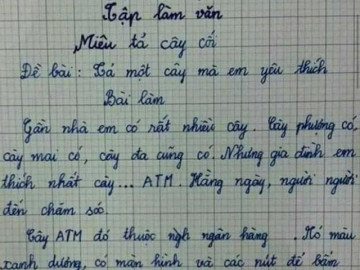 Tập làm văn
Miêu tả cây cối
Đề bài : Tả một cây mà em yêu thích
Bài làm
Gần nhà em có rất nhiều cây. Cây phượng có,
cây mai có, cây đa cũng có. Nhưng gia đình em
thích nhất cây... ATM. Hằng ngày, người người
đến chăm sóc.
Cây ATM đó thuộc ngân hàng. Nó màu
xanh dương, có màn hình và các nút để bấm